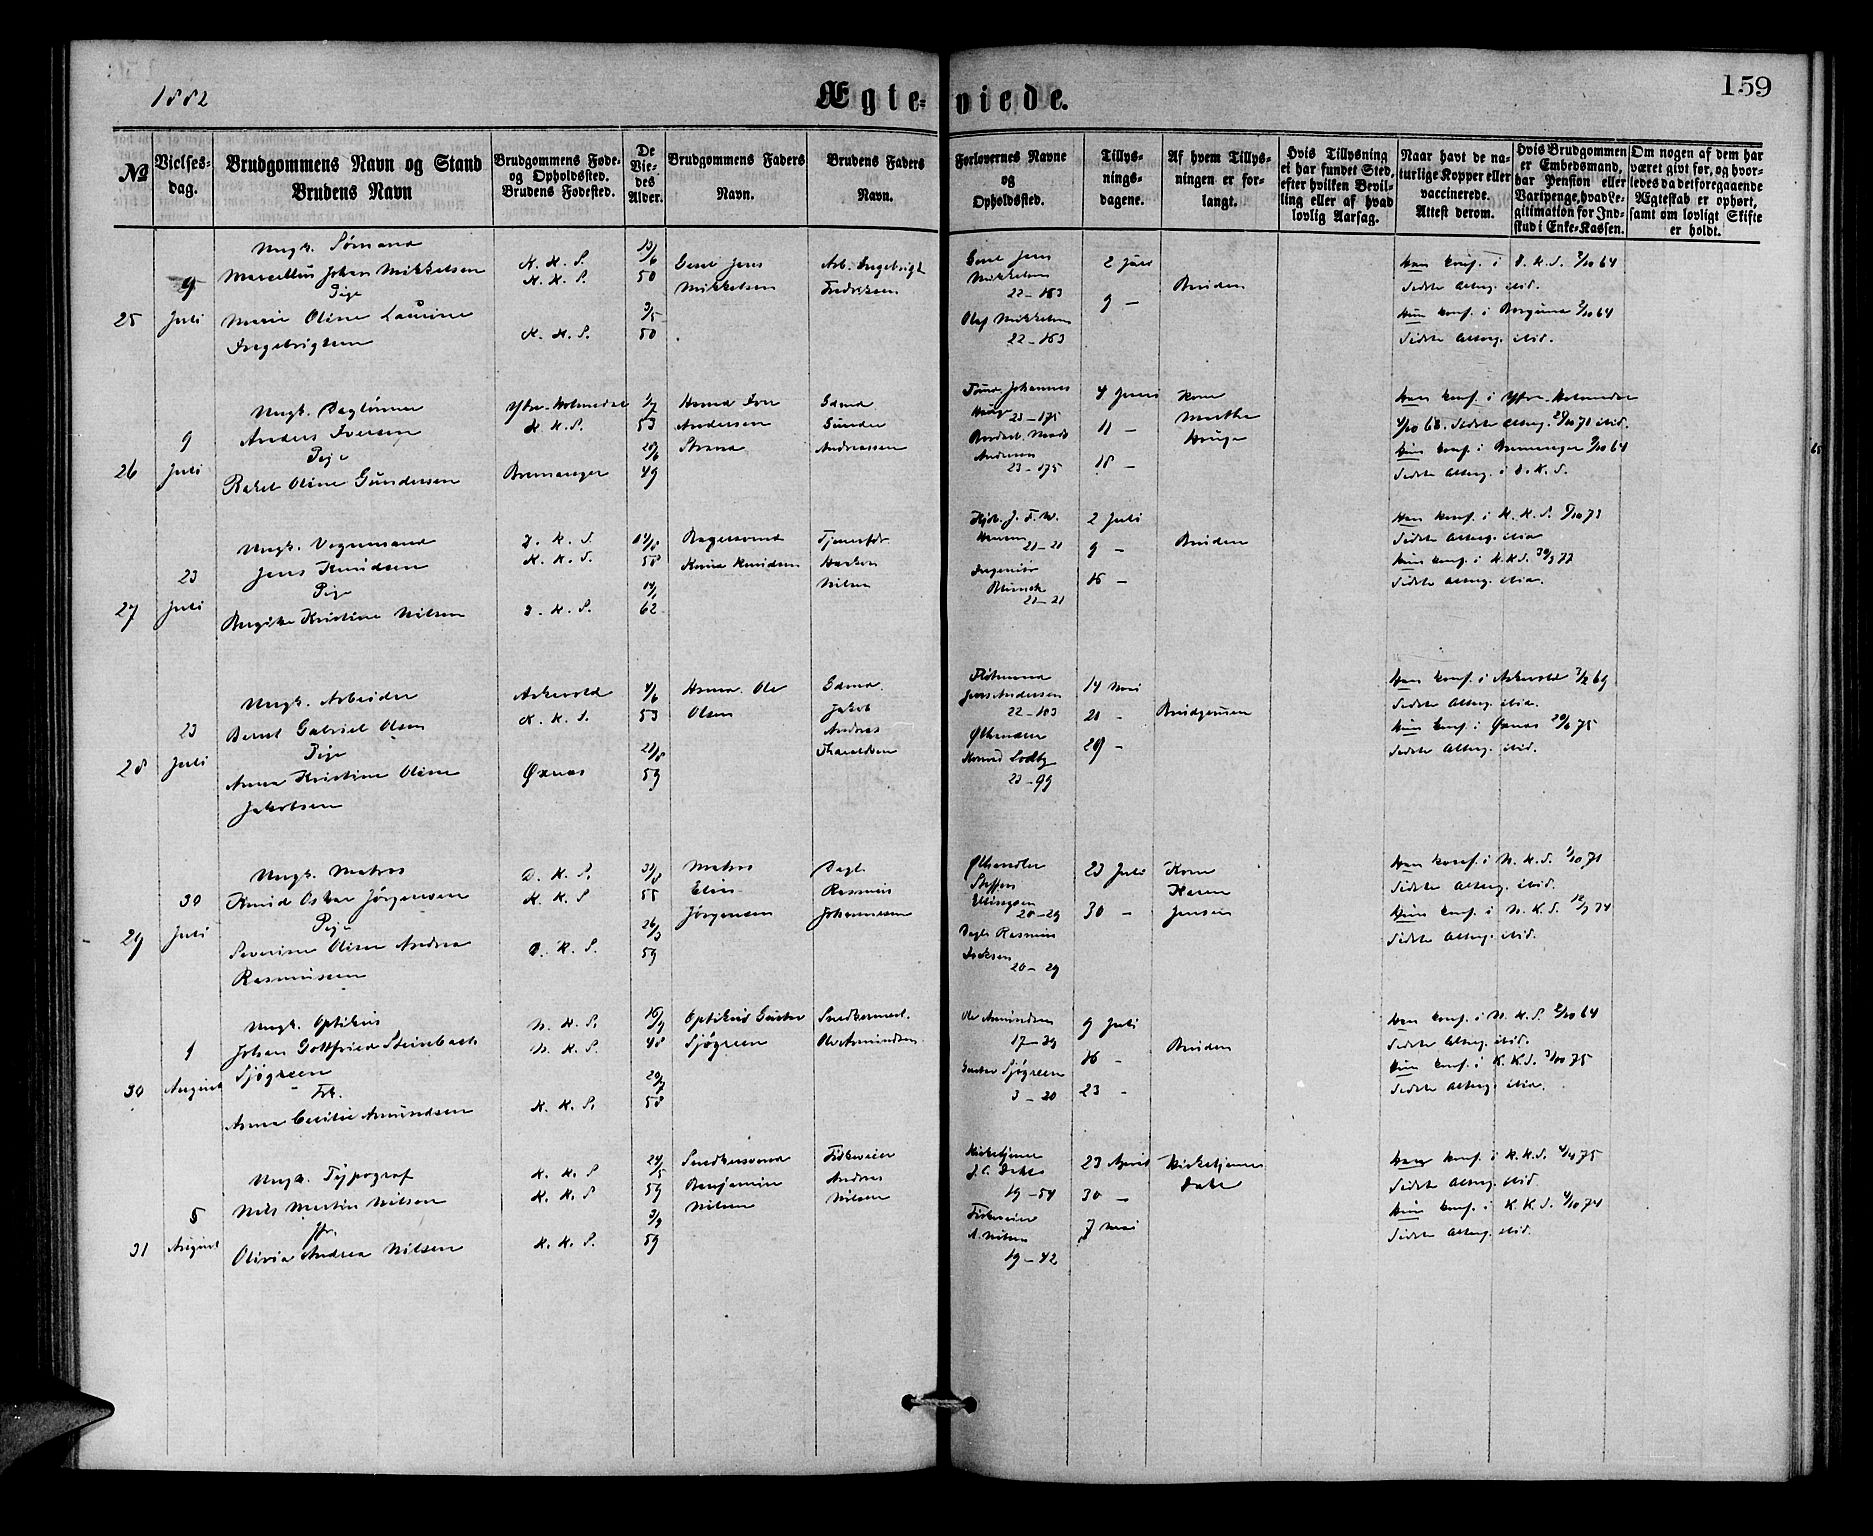 1882
Ægte-viede.
159
№
Vielses-dag.
Brudgommens Navn og Stand
Brudens Navn
Brudgommens Føde- og Opholdssted.
Brudens Fødested.
De Vie-des Alder.
Brudgommens Faders Navn.
Brudens Faders Navn.
Forlovernes Navne og Opholdsted.
Tillys-nings-dagene.
Af hvem Tillys-ningen er for-langt.
Hvis Tillysning ei har fundet Sted, efter hvilken Bevil-ling eller af hvad lovlig Aarsag.
Naar havt de na-turlige Kopper eller vaccinerede. Attest derom.
Hvis Brudgommen er Embedsmand, har Pension eller Vartpenge, hvad Le-gitimation for Ind-skud i Enke-Kassen.
Om nogen af dem har været givt før, og hvor-ledes da det foregaaende Ægteskab er ophørt, samt om lovligt Skifte er holdt.
25
9 Juli
Ungk. Sømand
Marcellus Johan Mikkelsen
Pige
Marie Oline Laurine
Ingebrigtsen
K. K. S.
K. K. S.
K. K. S.
50
3/5
50
Jens
Mikkelsen
Arb. Ingebrigt
Fredriksen
Jens
Mikkelsen
22-163
Olaf Mikkelsen
22-163
2 Juli
9 -
Bruden
Han konf. i D. K. S. 2/10 64
Sidste Alterg. ibid.
Hun konf. i Borgund 2/10 64
Sidste Alterg. ibid.
26
9 Juli
Ungk. Daglønner
Anders Iversen
Pige
Rakel Oline Gundersen
Ytre-Holmedal
K. K. S.
Bremanger
53
49
Iver
Andersen
Strand
Gdmd.
Gunder
Andreassen
Johannes
Hauge
23-175
Andersen
23-175
4 Juni
11 -
18 -
Kone
Marthe
Hauge
Han konf. i Ytre-Holmedal
Sidste Alterg. ibid.
Hun konf. i Bremanger 9/10 64
Sidste Alterg. i D. K. S.
27
23 Juli
Ungk. Vognmand
Jens Knudsen
Pige
Birgitte Kristine Nilsen
D. K. S.
K. K. S.
D. K. S.
58
62
Bagersvend
Knudsen
Nilsen
J. F. W.
Hansen
21-21
Ingeniør
21-21
2 Juli
9 -
16 -
Bruden
Han konf. i K. K. S.
Sidste Alterg. ibid.
Hun konf. i K. K. S. 30/9 77
Sidste Alterg. ibid.
28
23 Juli
Ungk. Arbeider
Bernt Gabriel Olsen
Pige
Anna Kristine Oline
Jakobsen
Askevold
K. K. S.
Øxnes
4/6
53
59
Ole
Olsen
Gdmd.
Jakob
Andreas
Tharaldsen
Jens Andersen
22-103
Konrad
23-99
14 Mai
21 -
29 -
Brudgommen
Han konf. i Askevold 69
Sidste Alterg. ibid.
Hun konf. i Øxnes 75
Sidste Alterg. ibid.
29
30 Juli
Ungk. Matros
Knud Oskar Jørgensen
Pige
Severine Oline Andrea
Rasmussen
D. K. S.
K. K. S
D. K. S.
55
26/3
59
Matros
Elias
Jørgensen
Dagl.
Rasmus
Johannesen
Ølhandler
Steffen
Ellingsen
20-29
Dagl. Rasmus
20-29
23 Juli
30 -
Kone
Karen
Jensen
Han konf. i N. K. S. 71
Sidste Alterg. ibid.
Hun konf. i N. K. S. 74
Sidste Alterg. ibid.
30
1 August
Ungk. Optikus
Johan Gottfried Steinbach
Sjøgreen
Frk.
Anna Cecilie Amundsen
N. K. S.
N. K. S.
K. K. S.
48
58
Optikus Gustav
Sjøgreen
Snedkermest.
Ole Amundsen
Ole Amundsen
17-39
Gustav Sjøgreen
3-20
9 Juli
16 -
23 -
Bruden
Han konf. i N. K. S. 2/10 64
Sidste Alterg. ibid.
Hun konf. i K. K. S. 75
Sidste Alterg. ibid.
31
5 August
Ungk. Typograf
Nils Martin Nilsen
Jfr.
Olivia Andrea Nilsen
K. K. S
K. K. S
K. K. S.
24/5
59
3/9
59
Snedkersvend
Benjamin
Nilsen
Andreas
Nilsen
Kirketjener
J. C. Dahl
19-54
A. Nilsen
19-42
23 April
30 -
7 Mai
Kirketjener
Dahl
Han konf. i K. K. S. 75
Sidste Alterg. ibid.
Hun konf. i K. K. S. 4/10 74
Sidste Alterg. ibid.